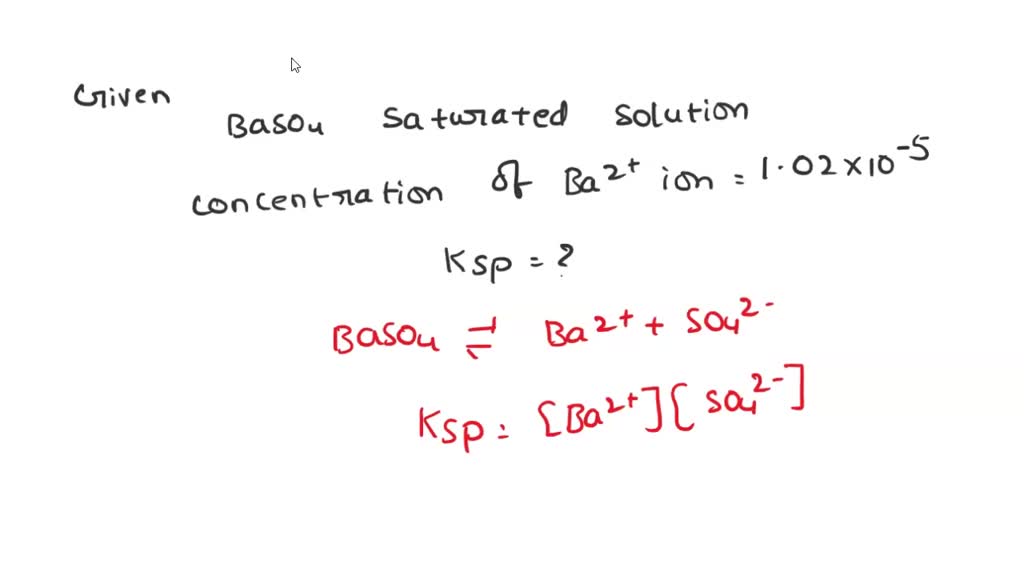 Given
BaSO4 saturated solution
concentration of Ba2+ ion = 1.02×10-5
Ksp = ?
BaSO4 ⇌ Ba2+ + SO42-
Ksp = [Ba2+][SO42-]